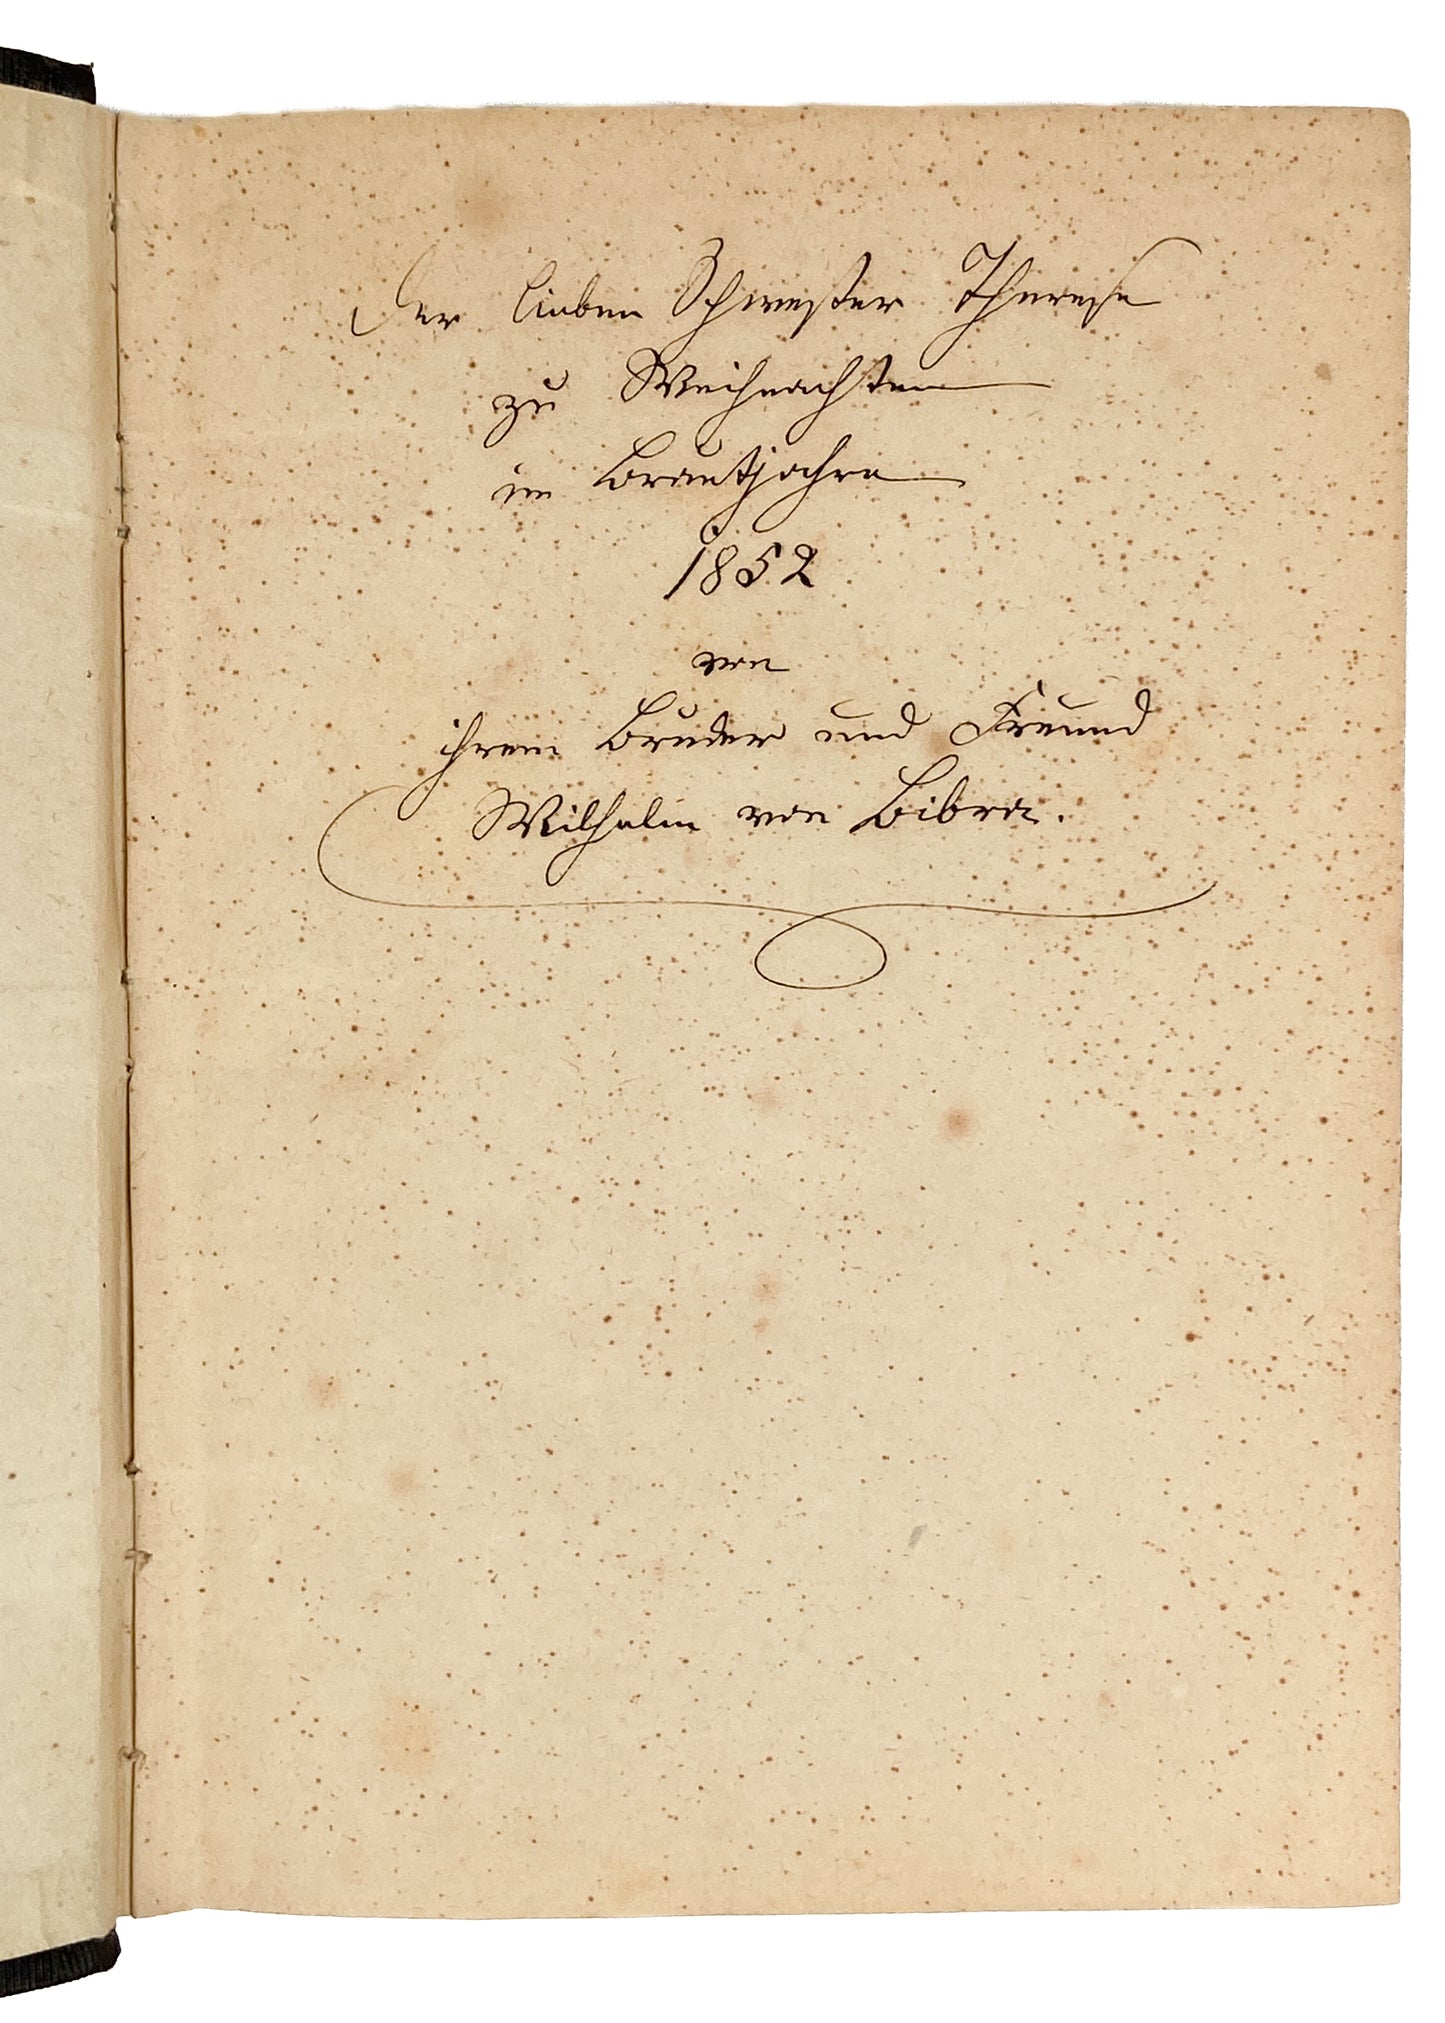 Der lieben Schwester Therese
zu Weihnachten
im Brautjahre
1852
von
ihrem Bruder und Freund
Wilhelm von Bibra.